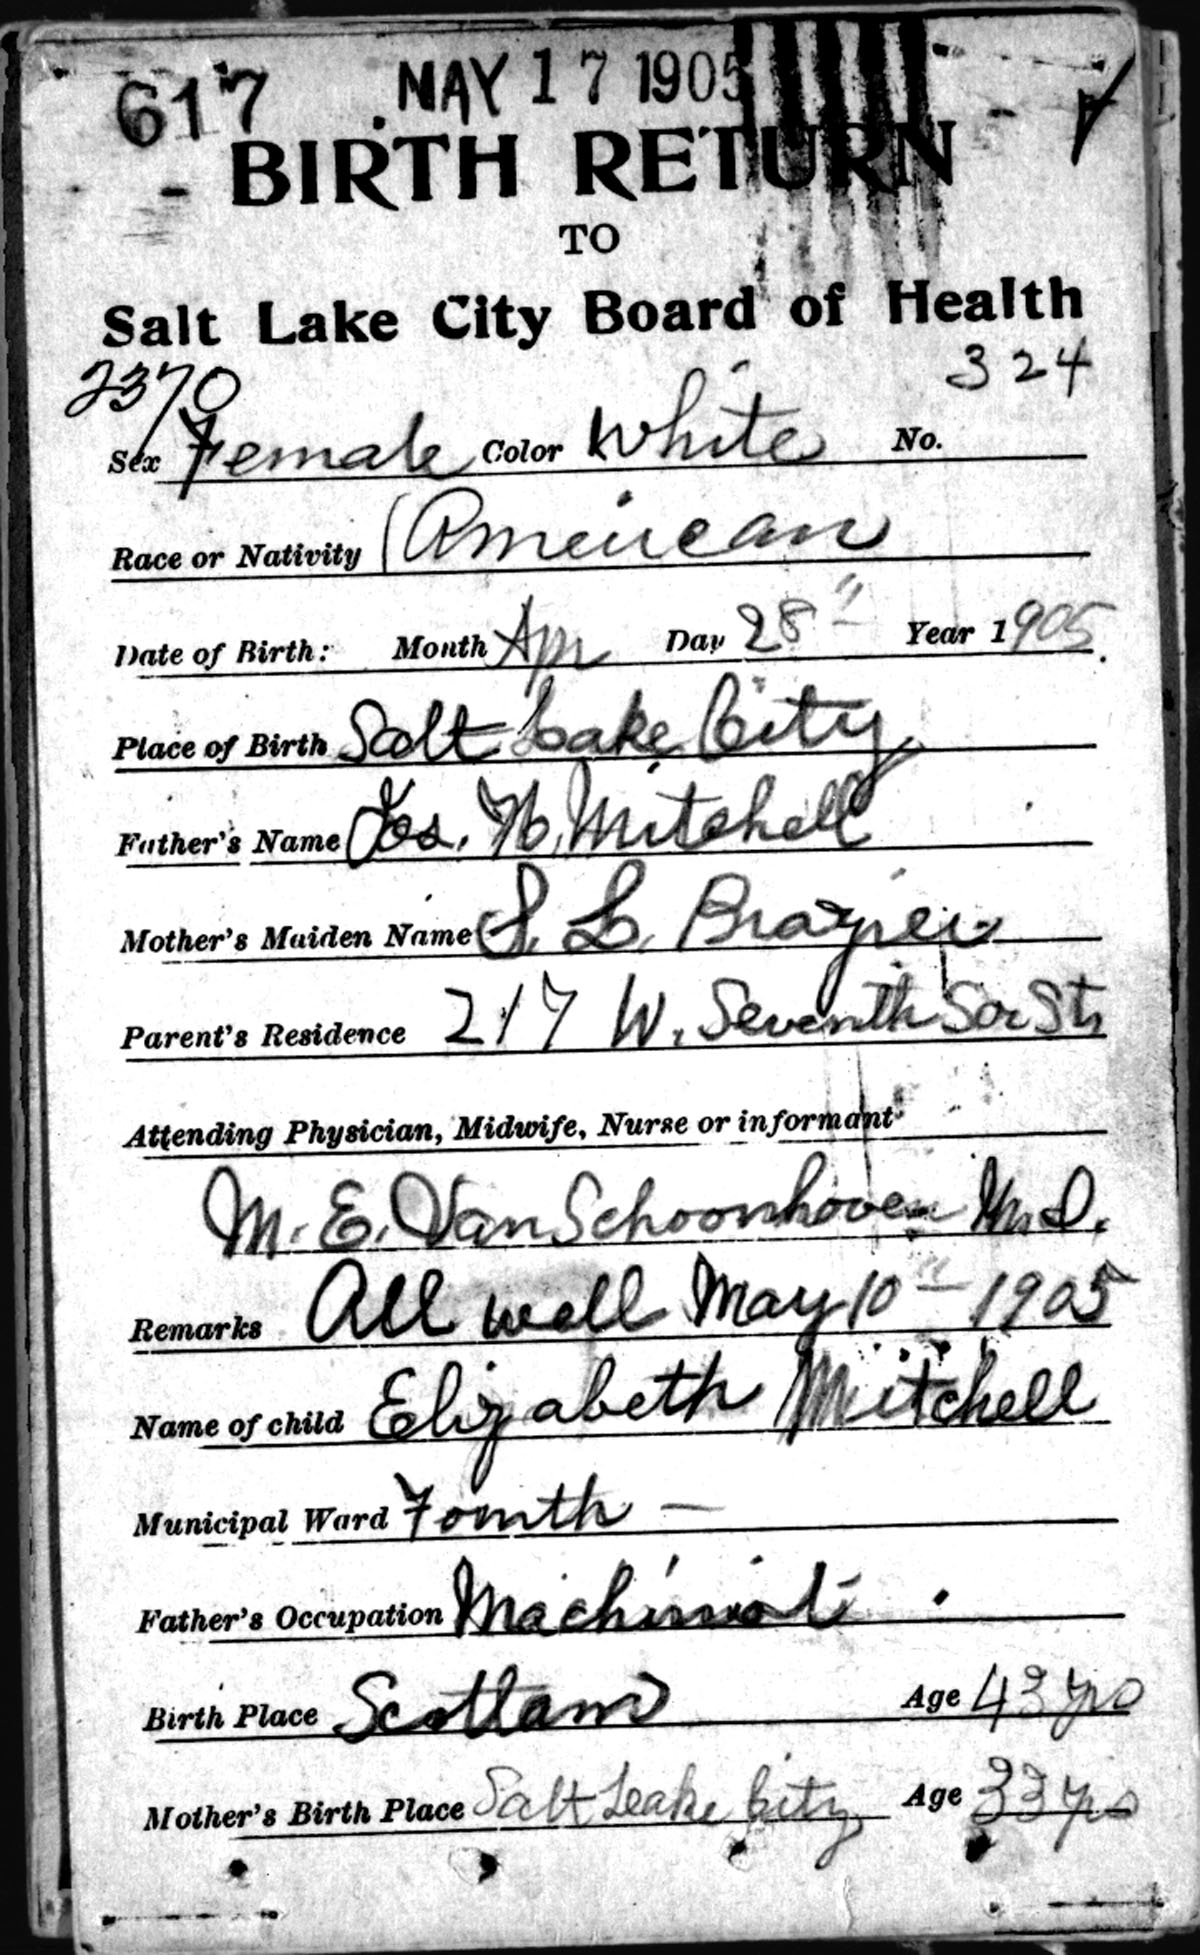 617 MAY 17 1905
BIRTH RETURN
TO
Salt Lake City Board of Health
2370 324
Sex Female Color White No.
Race or Nativity American
Date of Birth: Month Apr Day 28" Year 1905.
Place of Birth Salt Lake City
Father's Name Jos. H. Mitchell
Mother's Maiden Name S. L. Brazier
Parent's Residence 217 W. Seventh So St,
Attending Physician, Midwife, Nurse or informant
M. E. Van Schoonhoven M.D.
Remarks All well May 10" 1905
Name of child Elizabeth Mitchell
Municipal Ward Fourth —
Father's Occupation Machinist
Birth Place Scotland Age 43 yrs
Mother's Birth Place Salt Lake City Age 33 yrs